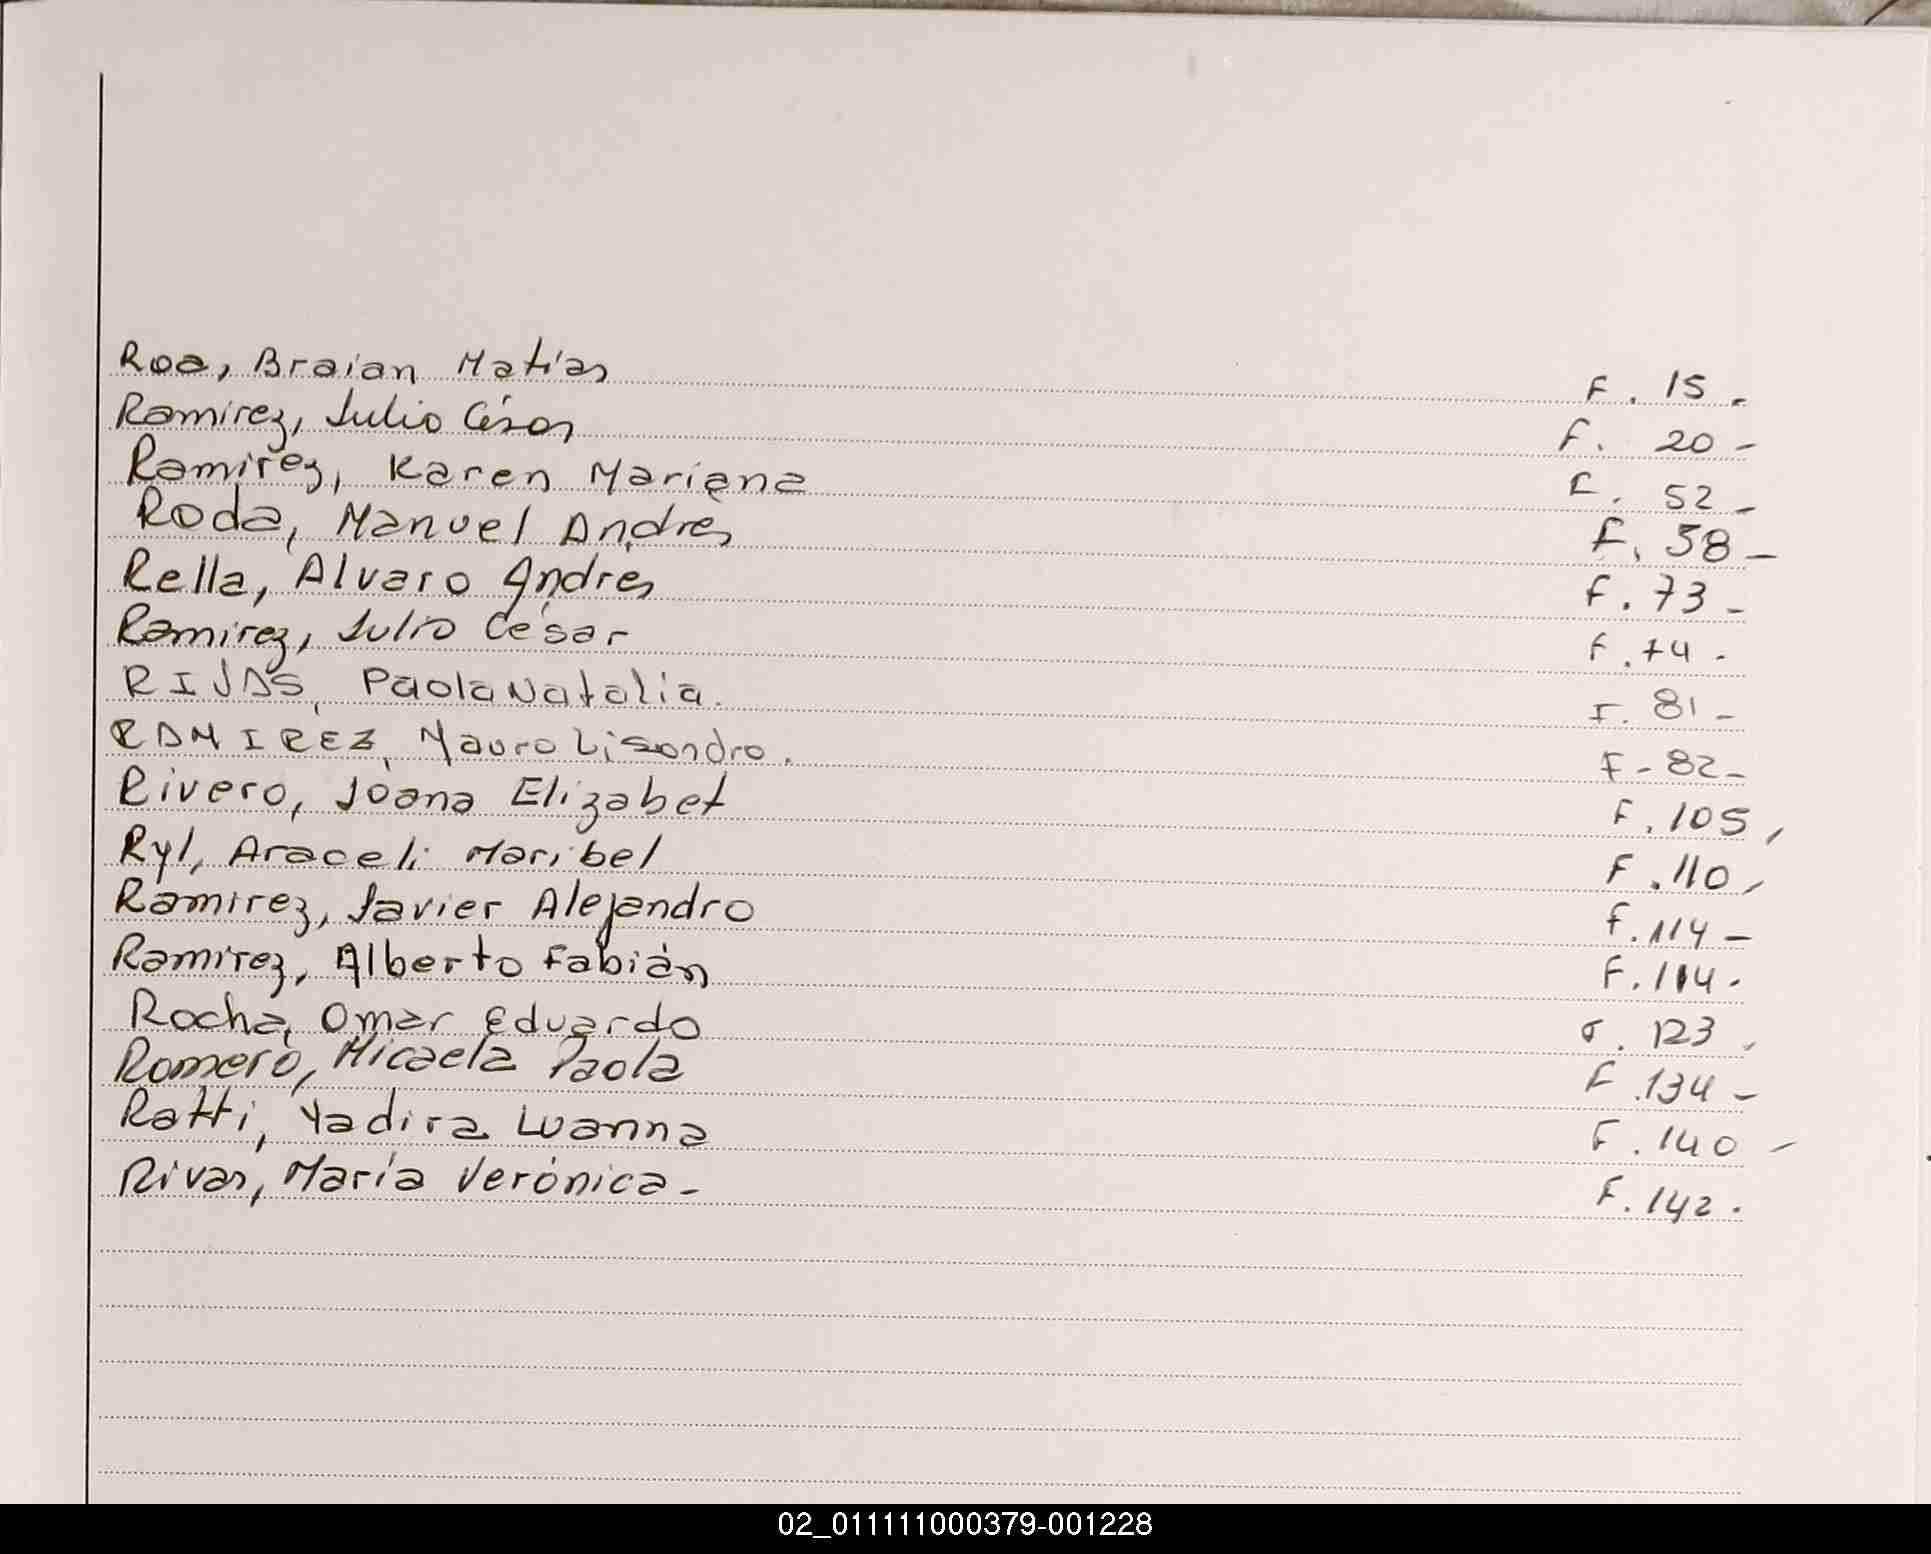 Roa, Braian Matías F. 15.
Ramirez, Julio César F. 20-
Ramirez, Karen Mariana F. 52-
Roda, Manuel Andrés F. 58-
Rella, Alvaro Andres F. 73-
Ramirez, Julio César F. 74.
RIJAS, Paola Natalia. F. 81-
RAMIREZ, Mauro Lisandro. F-82-
Rivero, Joana Elizabet F. 105,
Ryl, Araceli Maribel F. 110,
Ramirez, Javier Alejandro F. 114-
Ramirez, Alberto Fabián F. 114.
Rocha, Omar Eduardo F. 123,
Romero, Micaela Paola F. 134-
Ratti, Yadira Luanna F. 140-
Rivas, María Verónica- F. 142.
02_011111000379-001228